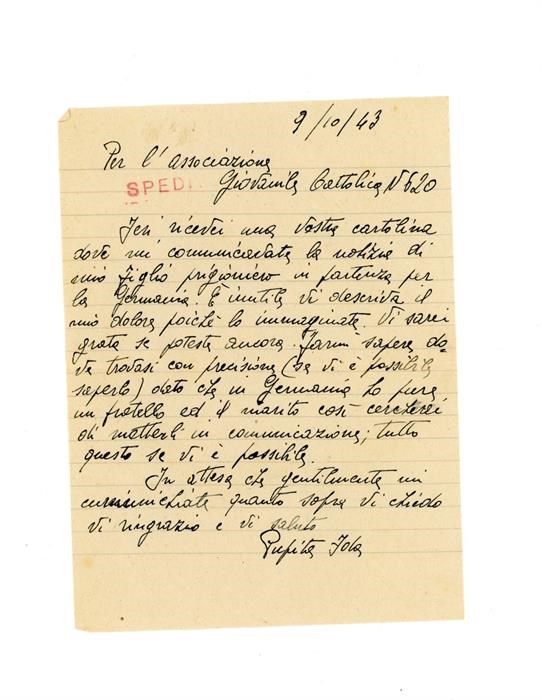 9/10/43
Per l'associazione
SPED
Giovanile Cattolica N 620
Jeri ricevei una vostra cartolina
dove mi comunicavate la notizia di
mio figlio prigioniero in partenza per
la Germania. È inutile vi descriva il
mio dolore poiché lo immaginate. Vi sarei
grata se poteste ancora farmi sapere do-
ve trovasi con precisione (se vi è possibile
saperlo) dato che in Germania ho pure
un fratello ed il marito così cercherei
di metterli in comunicazione; tutto
questo se vi è possibile.
In attesa che gentilmente mi
comunichiate quanto sopra vi chiedo
vi ringrazio e vi saluto
Ida